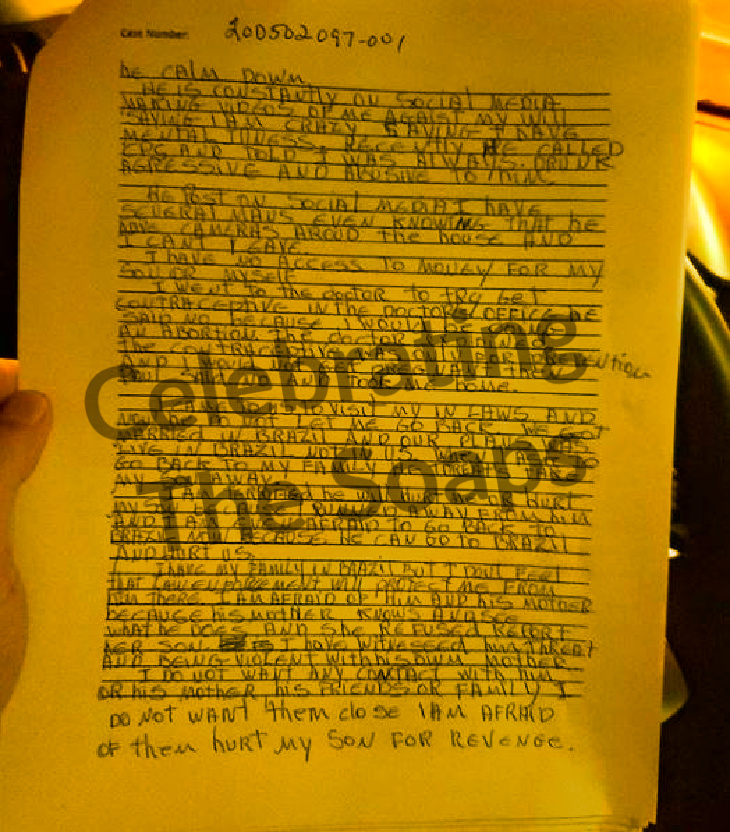 Case Number: 200502097-001
he CALM DOWN.
HE IS CONSTANTLY ON SOCIAL MEDIA
MAKING VIDEOS OF ME AGAIST MY WILL
SAYING I AM CRAZY SAYING I HAVE
MENTAL ILLNESS. RECENTLY HE CALLED
CPS AND TOLD I WAS ALWAYS DRUNK
AGRESSIVE AND ABUSIVE TO HIM
HE POST ON SOCIAL MEDIA I HAVE
SEVERAL MANS EVEN KNOWING THAT he
HAVE CAMERAS AROUD the house AND
I CAN'T LEAVE
I HAVE NO ACCESS TO MONEY FOR MY
SON OR MYSELF
I WENT TO the doctor to try get
CONTRACEPTIVE IN THE DOCTORS OFFICE he
SAID NO because I WOULD BE
AN ABORTION the doctor
the CONTRACEPTIVE WAS ONLY FOR PREVENTION
AND I WOULD NOT GET PREGNANT then
SAID NO AND TOOK ME home.
US to visit my IN LAWS AND
NOW he DO NOT LET ME GO BACK. WE GOT
MARRIED IN BRAZIL AND OUR PLAN WAS
LIVE IN BRAZIL NOT IN US
GO BACK TO MY FAMILY he threats TAKE
MY SON AWAY.
I AM TERRIFIED he will hurt me OR hurt
MY SON AWAY FROM him
AND I AM AFRAID TO GO BACK TO
BRAZIL because he CAN GO TO BRAZIL
AND HURT US.
I have MY FAMILY IN BRAZIL but I DONT Feel
that LAW ENFORCEMENT WILL PROTECT ME FROM
him there. I AM AFRAID OF him AND his MOTHER
because his MOTHER KNOWS AND SEE
what he does AND She REFUSED REPORT
HER SON. I have WITNESSED him threat
AND BEING VIOLENT with his OWN MOTHER
I DO NOT WANT ANY CONTACT with him
OR his MOTHER his FRIENDS OR FAMILY I
DO NOT WANT them close I AM AFRAID
OF them hurt MY SON FOR REVENGE.
Celebrating
The Soaps